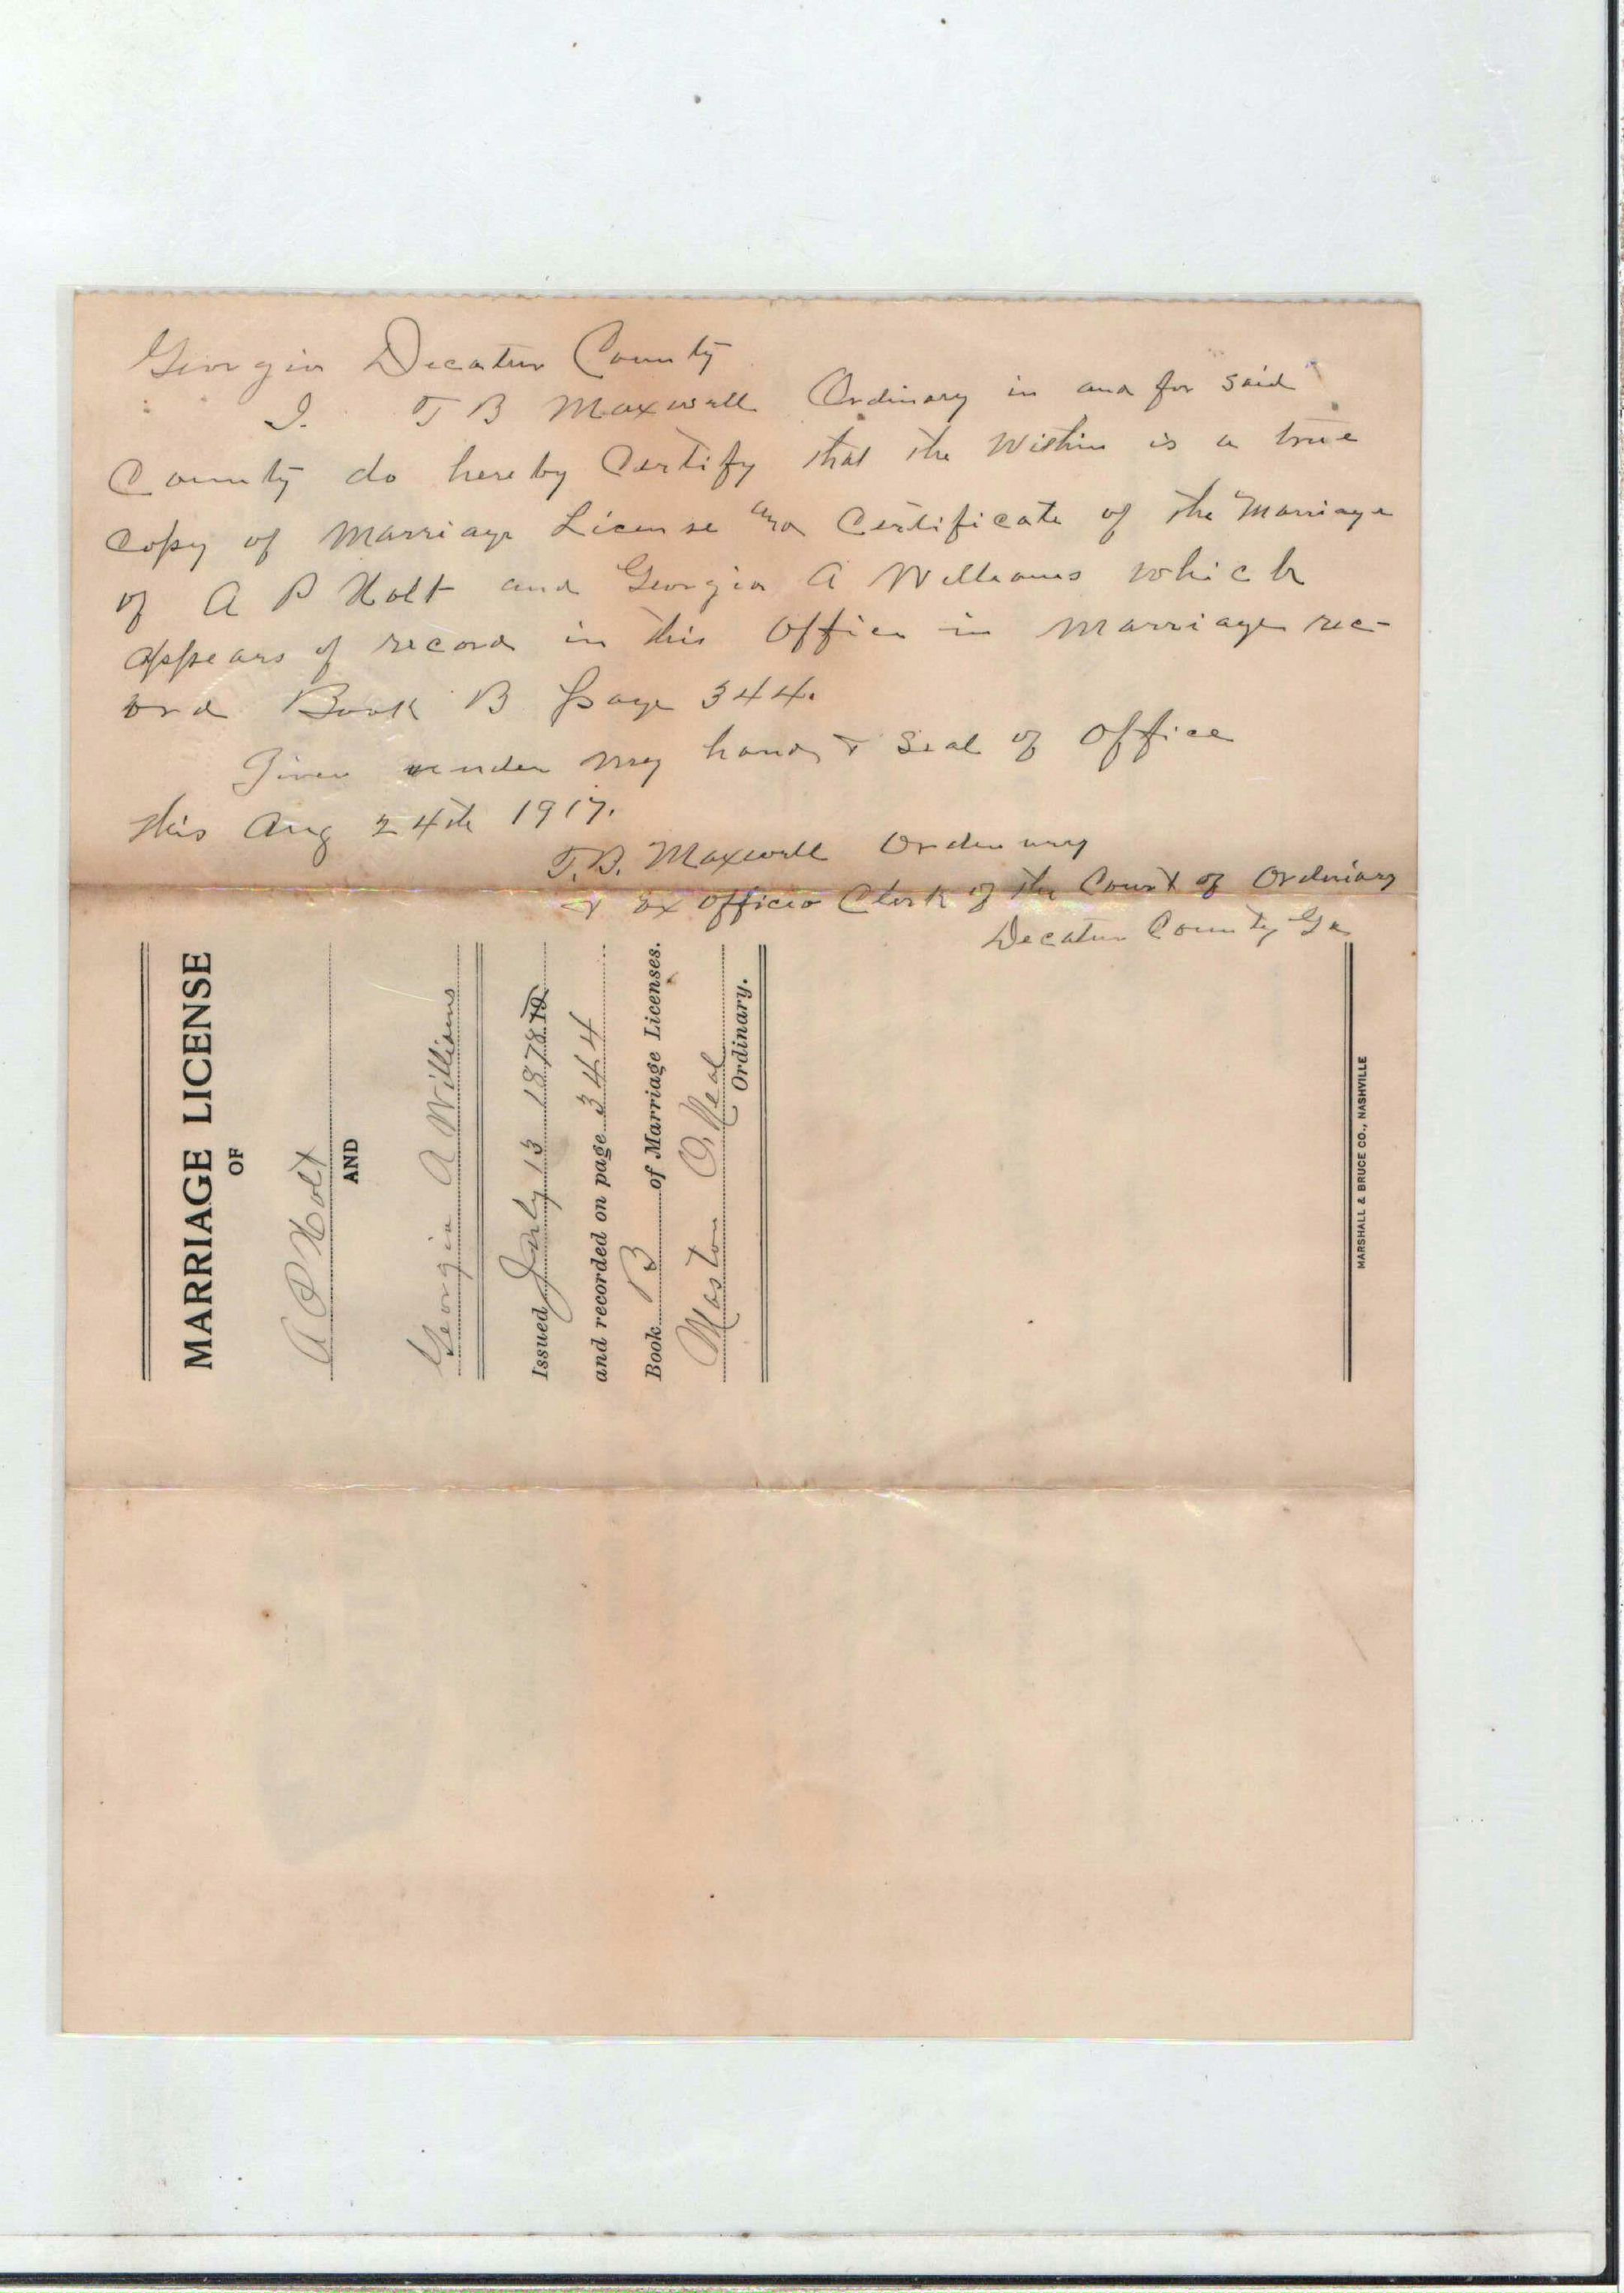 Georgia Decatur County
I. T B Maxwell Ordinary in and for said
County do hereby Certify that the Within is a true
Copy of Marriage License and Certificate of the Marriage
of A P Holt and Georgia A Williams which
appears of record in this Office in Marriage rec-
ord Book B page 344.
Given under my hand & Seal of Office
this Aug 24th 1917.
T.B. Maxwell Ordinary
& Ex Officio Clerk of the Court of Ordinary
Decatur County Ga
MARRIAGE LICENSE
OF
A P Holt
AND
Georgia A Williams
Issued July 13 1878
and recorded on page 344
Book B of Marriage Licenses.
Maston O.Neal
Ordinary.
MARSHALL & BRUCE CO., NASHVILLE